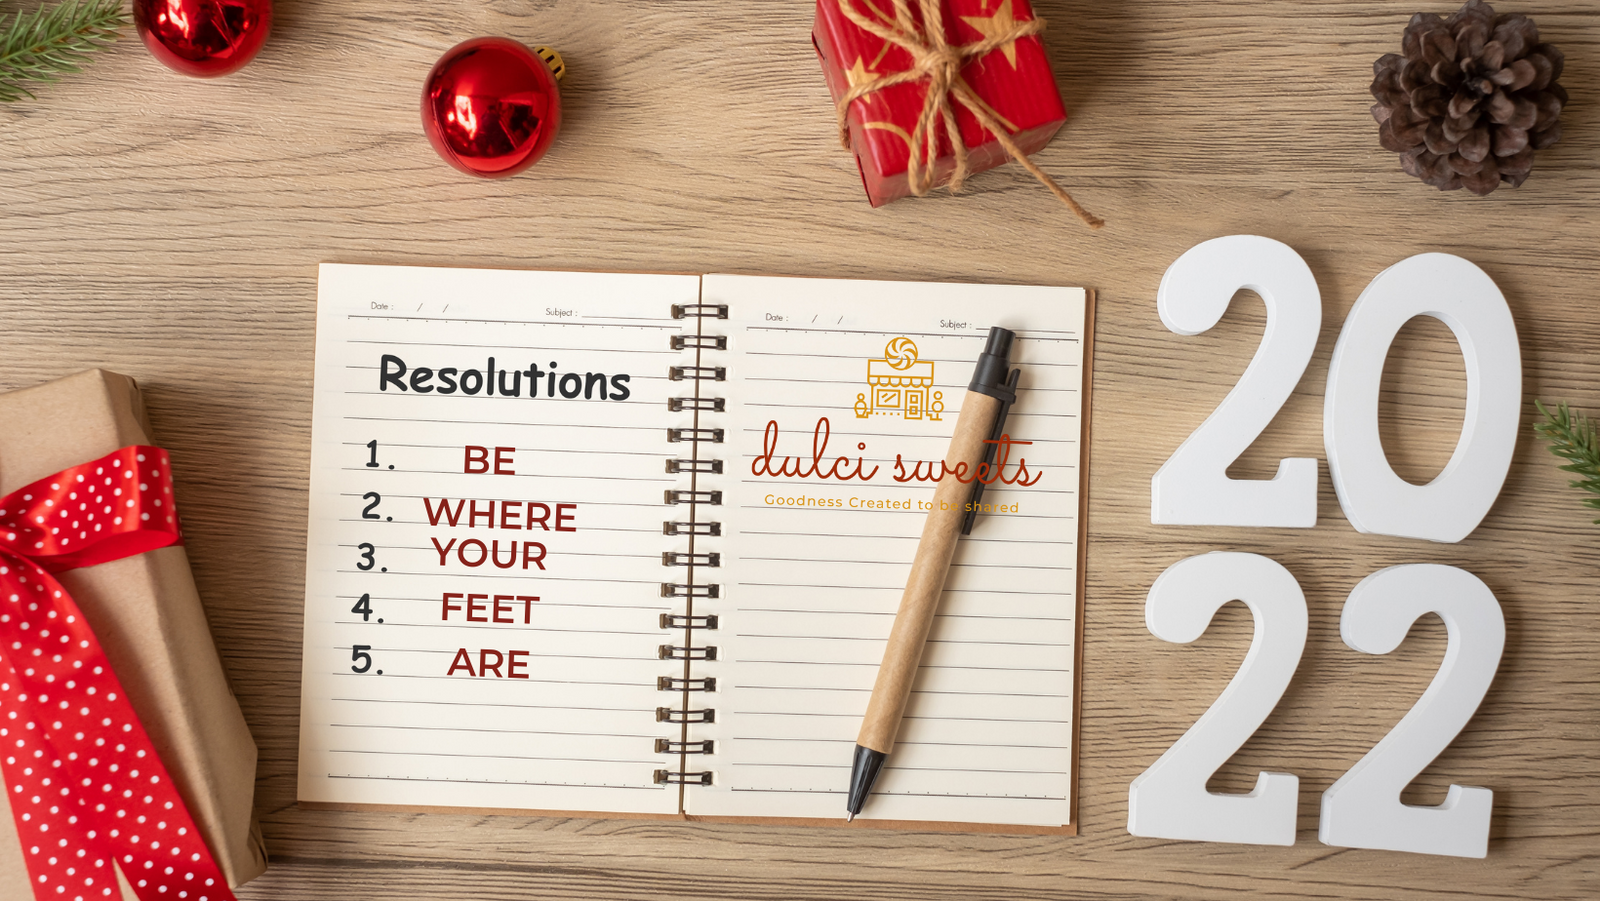 Date : / /
Subject :
Resolutions
1. BE
2. WHERE
3. YOUR
4. FEET
5. ARE
Date : / /
Subject :
dulci sweets
Goodness Created to be shared
20
22